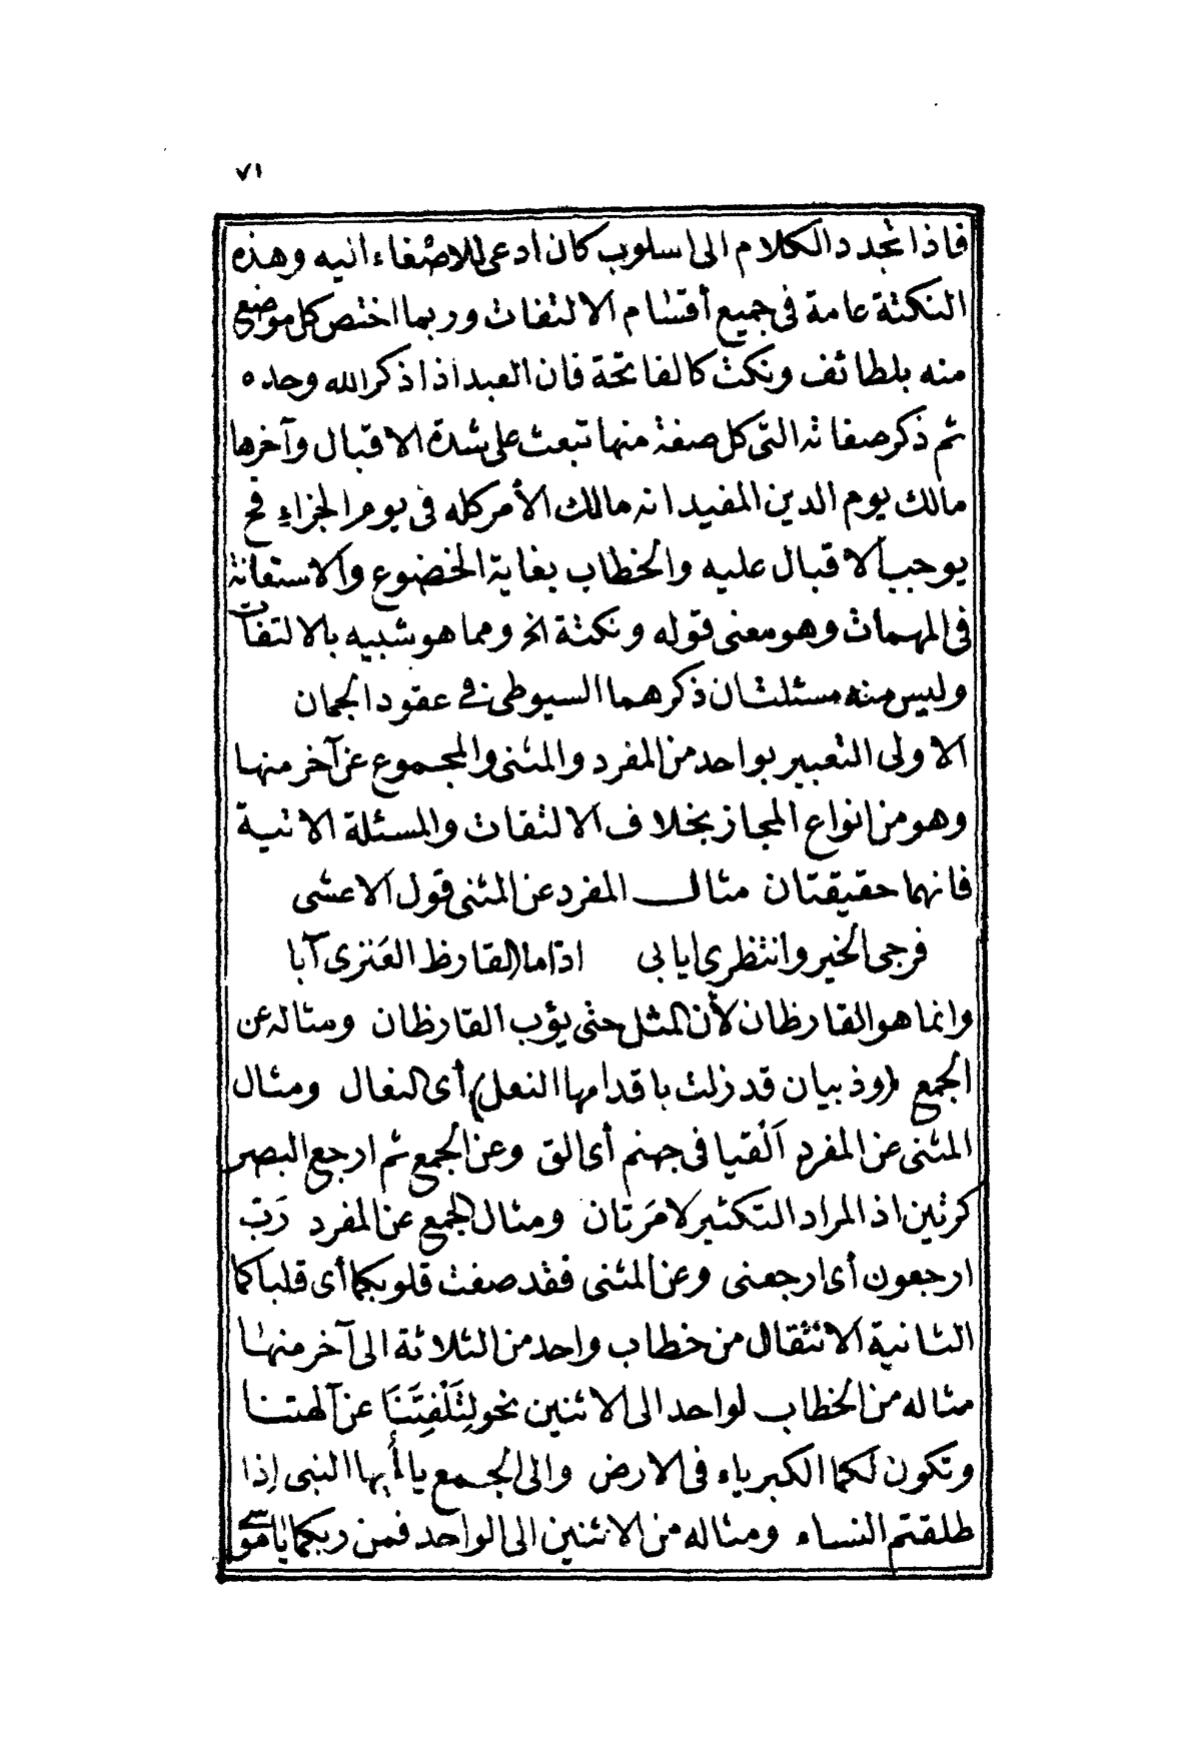 ٧١
فاذا تجدد الكلام الى اسلوب كان ادعى للاصغاء اليه وهذه
النكتة عامة فى جميع أقسام الالتفات وربما اختص كل موضع
منه بلطائف ونكت كالفاتحة فان العبد اذا ذكر الله وحده
ثم ذكر صفاته التى كل صفة منها تبعث على شدة الاقبال وآخرها
مالك يوم الدين المفيد انه مالك الأمر كله فى يوم الجزاء فح
يوجب الاقبال عليه والخطاب بغاية الخضوع والاستعانة
فى المهمات وهو معنى قوله ونكتة الخ ومما هو شبيه بالالتفات
وليس منه مسئلتان ذكرهما السيوطى فى عقود الجمان
الاولى التعبير بواحد من المفرد والمثنى والمجموع عن آخر منها
وهو من انواع المجاز بخلاف الالتفات والمسئلة الاتية
فانهما حقيقتان مثال المفرد عن المثنى قول الاعشى
فرجى الخير وانتظرى ايابى اذا ما القارظ العَنزى آبا
وانما هو القارظان لأن المثل حتى يؤب القارظان ومثاله عن
الجمع (وذبيان قد زلت باقدامها النعل) أى النعال ومثال
المثنى عن المفرد اَلْقيا فى جهنم أى الق وعن الجمع ثم ارجع البصر
كرتين اذ المراد التكثير لا مَرتان ومثال الجمع عن المفرد رَبّ
ارجعون أى ارجعنى وعن المثنى فقد صغت قلوبكما أى قلباكما
الثانية الانتقال من خطاب واحد من الثلاثة الى آخر منها
مثاله من الخطاب لواحد الى الاثنين نحو لِتَلْفِتَنَا عن آلهتنا
وتكون لكما الكبرياء فى الارض والى الجمع ياأيها النبى إذا
طلقتم النساء ومثاله من الاثنين الى الواحد فمن ربكما يا موسى